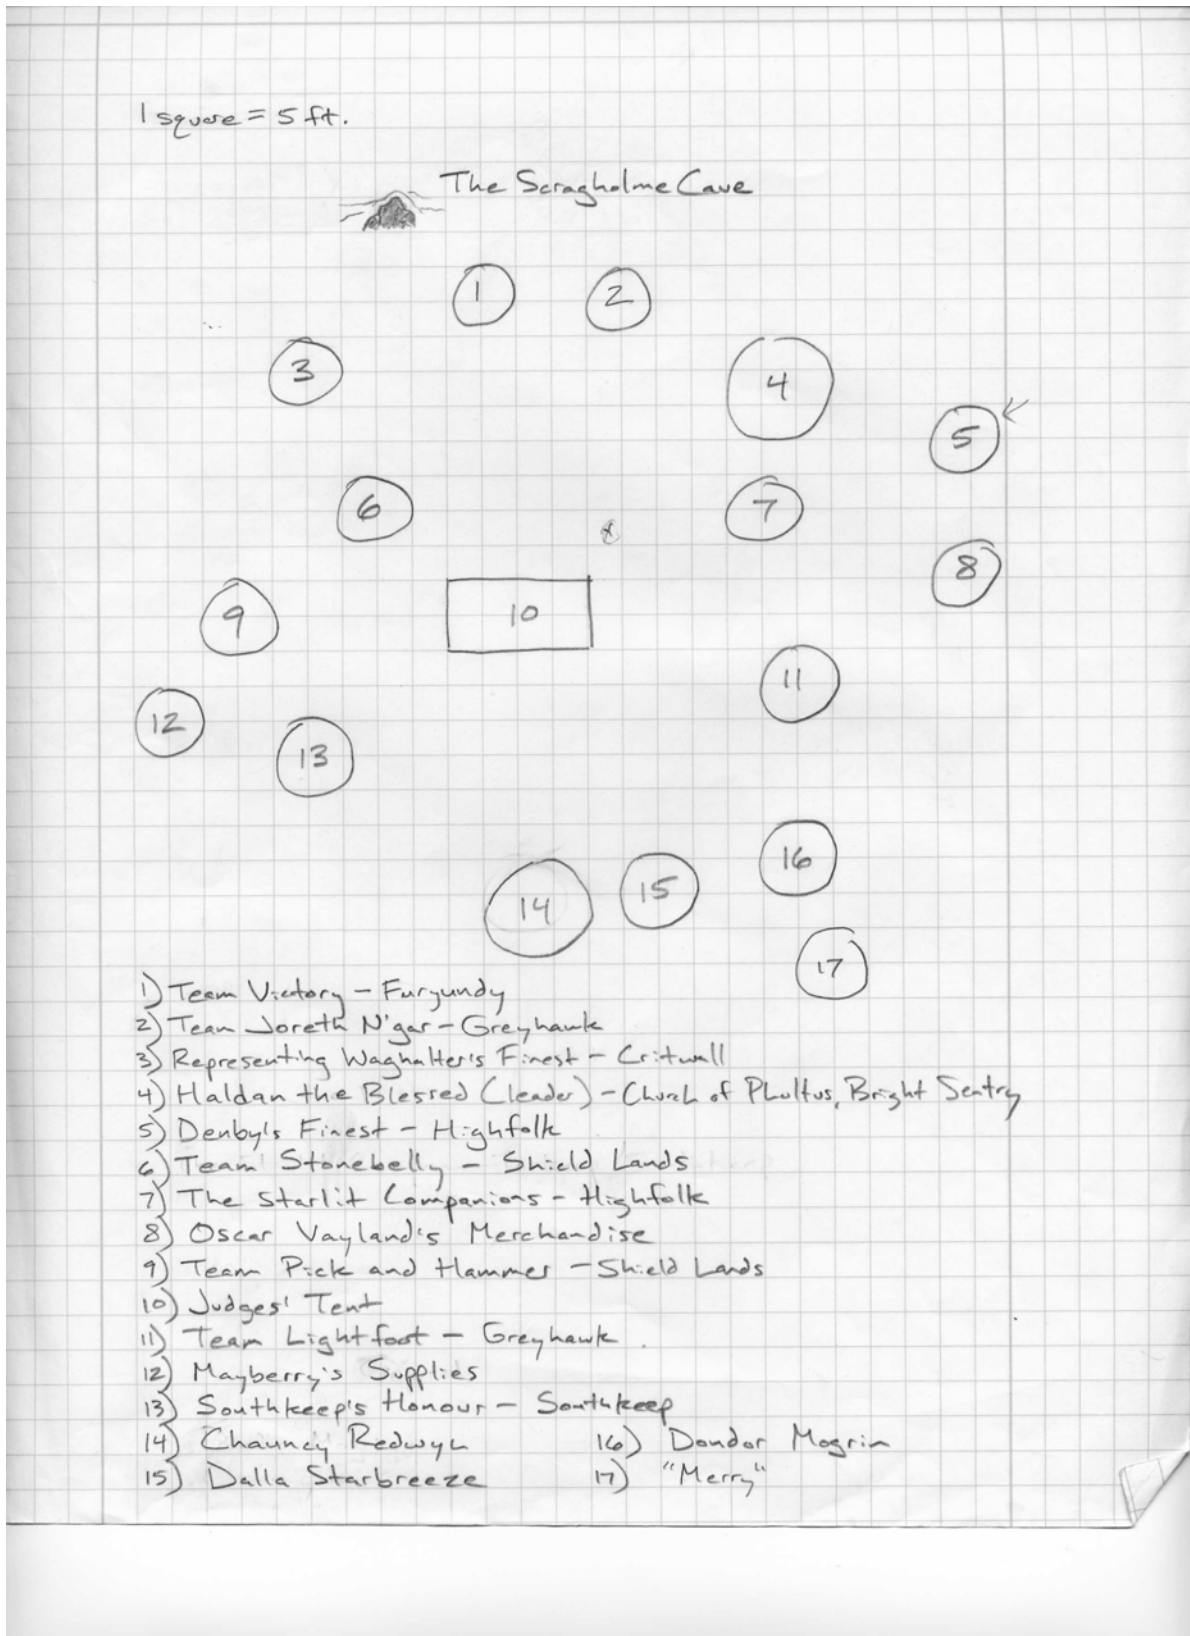 1 square = 5 ft.
The Scragholme Cave
1
2
3
4
5
6
7
8
9
10
11
12
13
14
15
16
17
1) Team Victory - Furyundy
2) Team Joreth N'gar - Greyhawk
3) Representing Waghalter's Finest - Critwall
4) Haldan the Blessed (leader) - Church of Pholtus, Bright Sentry
5) Denby's Finest - Highfolk
6) Team Stonebelly - Shield Lands
7) The Starlit Companions - Highfolk
8) Oscar Vayland's Merchandise
9) Team Pick and Hammer - Shield Lands
10) Judges' Tent
11) Team Lightfoot - Greyhawk
12) Mayberry's Supplies
13) Southkeep's Honour - Southkeep
14) Chauncy Redwyn 16) Dondor Mogrin
15) Dalla Starbreeze 17) "Merry"